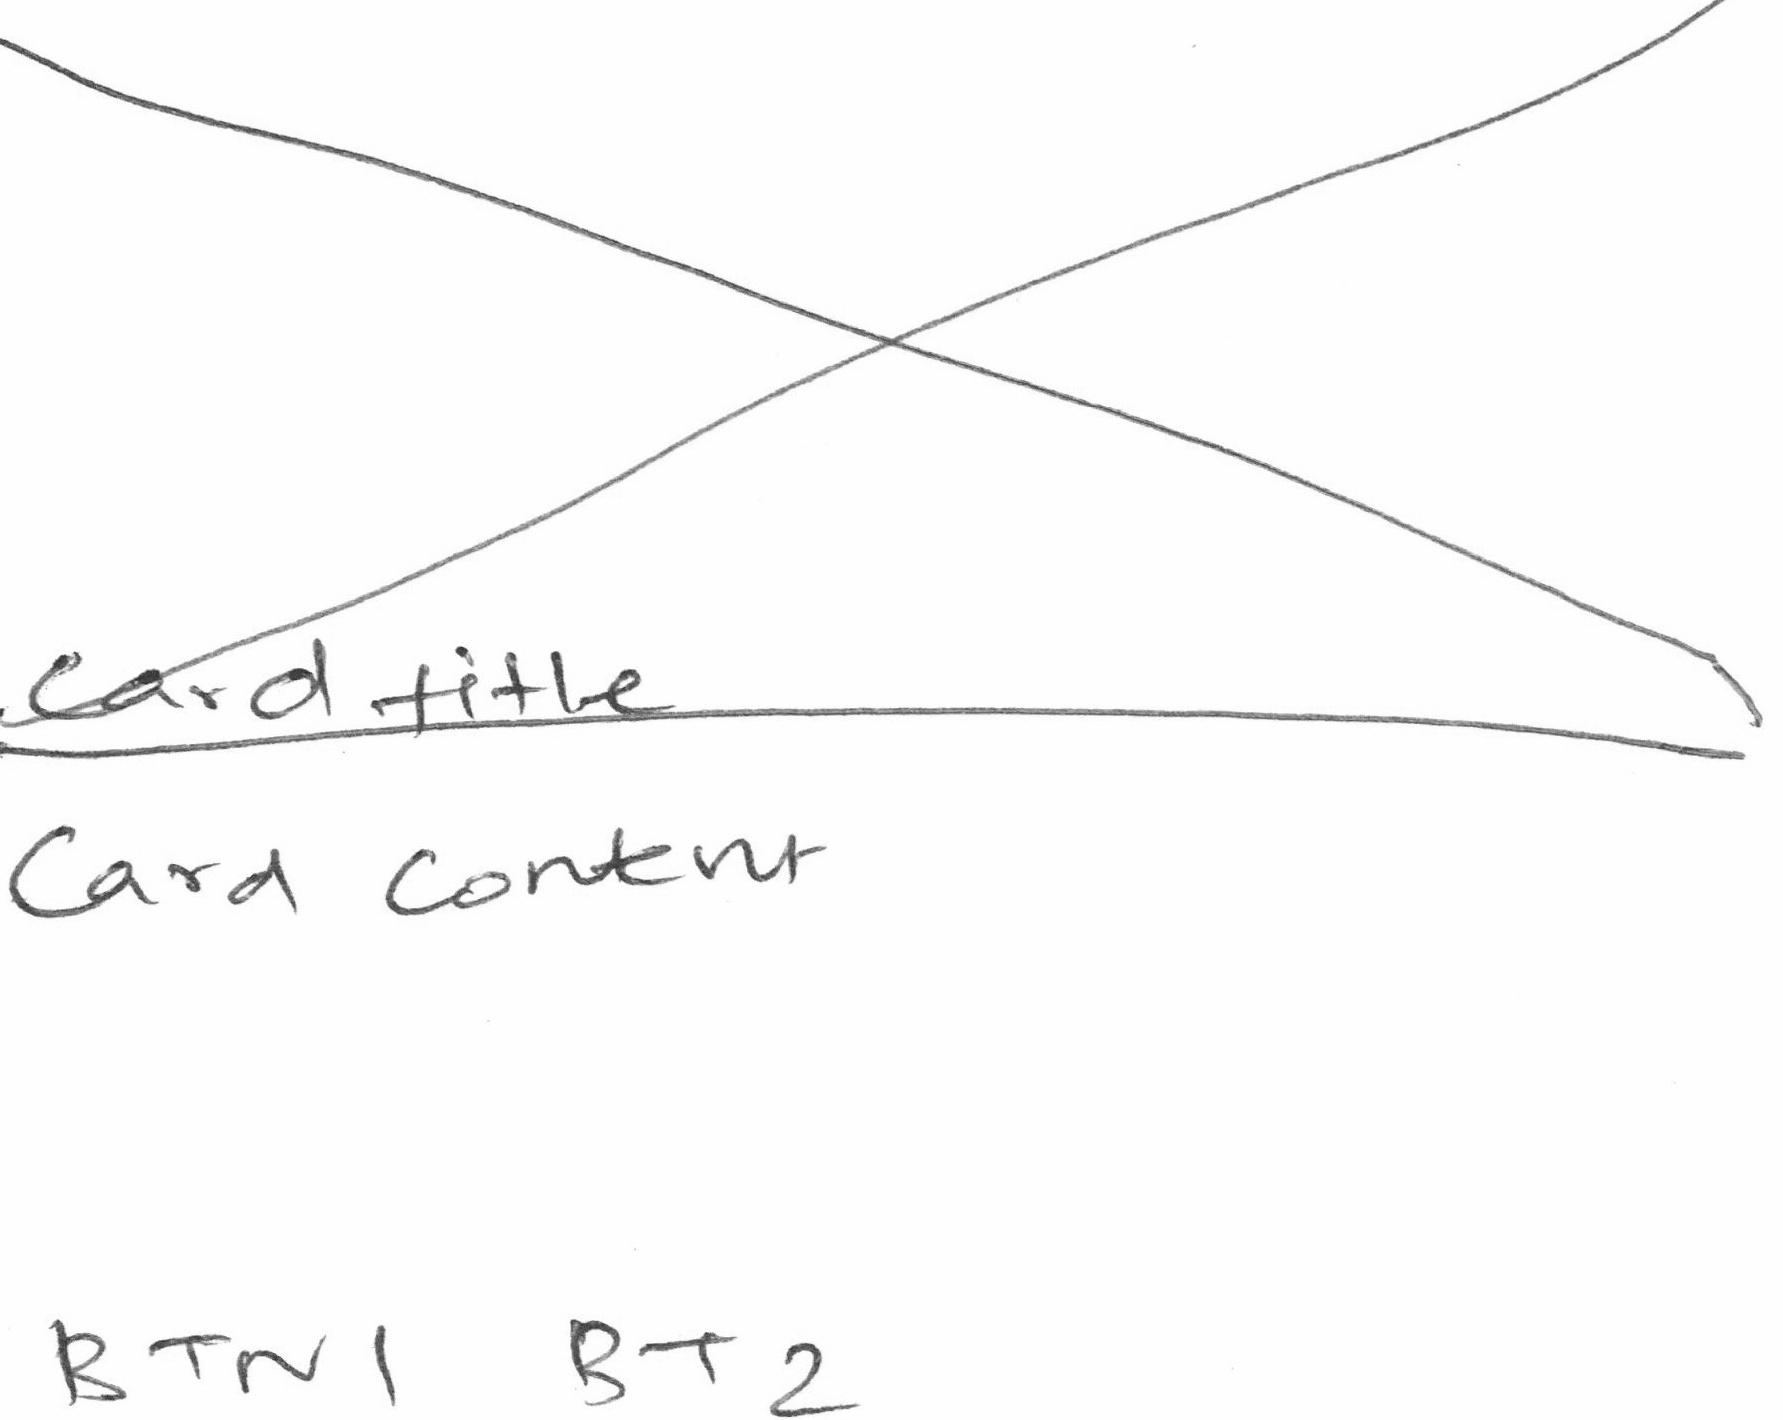 Card title
Card content
BTN1 BT2